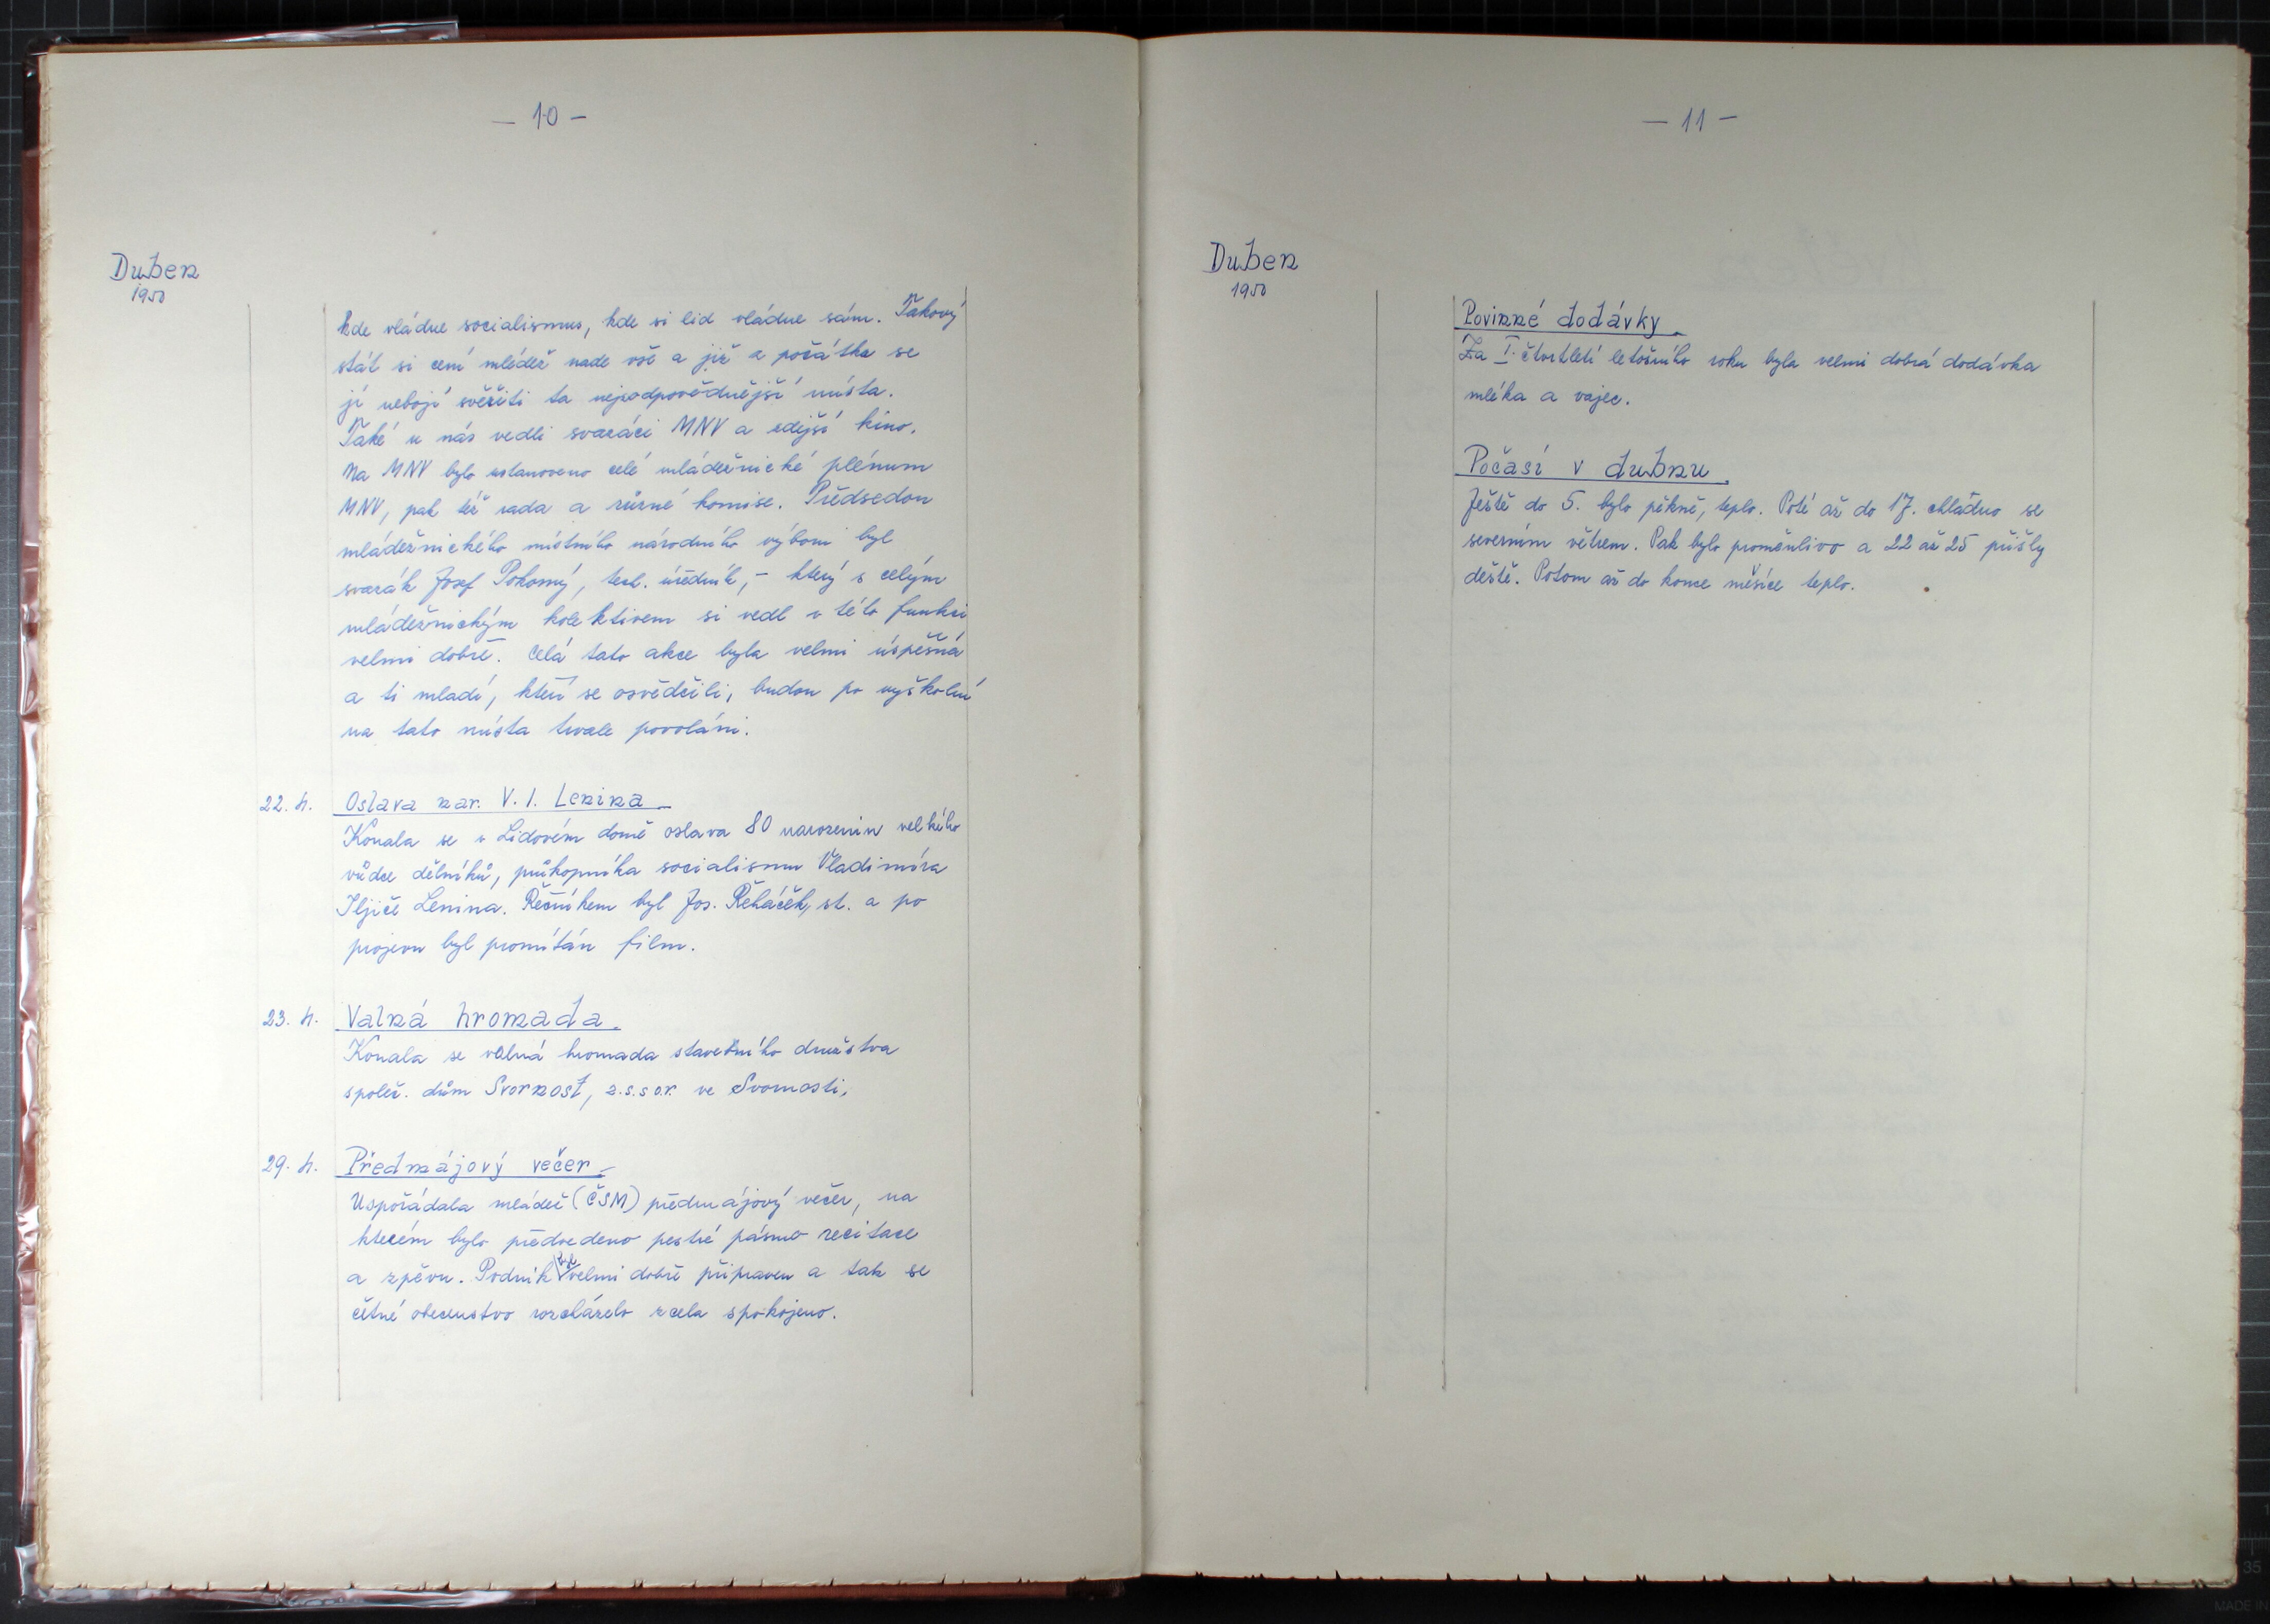 — 10 —
Duben
1950
kde vládne socialismus, kde si lid vládne sám. Takový
stát si cení mládež nade vše a již z počátku se
jí nebojí svěřiti ta nejzodpovědnější místa.
Také u nás vedli svazáci MNV a zdejší kino.
Na MNV bylo ustanoveno celé mládežnické plénum
MNV, pak též rada a různé komise. Předsedou
mládežnického místního národního výboru byl
svazák Josef Pokorný, tech. úředník, – který s celým
mládežnickým kolektivem si vedl v této funkci
velmi dobře. Celá tato akce byla velmi úspěšná
a ti mladí, kteří se osvědčili, budou po vyškolení
na tato místa trvale povoláni.
22. 4. Oslava nar. V. I. Lenina
Konala se v Lidovém domě oslava 80 narozenin velkého
vůdce dělníků, průkopníka socialismu Vladimíra
Iljiče Lenina. Řečníkem byl Jos. Řeháček, st. a po
projevu byl promítán film.
23. 4. Valná hromada.
Konala se valná hromada stavebního družstva
společ. dům Svornost, z.s.s o.r. ve Svornosti.
29. 4. Předmájový večer
Uspořádala mládež (ČSM) předmájový večer, na
kterém bylo předvedeno pestré pásmo recitace
a zpěvu. Podnik byl velmi dobře připraven a tak se
četné obecenstvo rozcházelo zcela spokojeno.
— 11 —
Duben
1950
Povinné dodávky
Za I. čtvrtletí letošního roku byla velmi dobrá dodávka
mléka a vajec.
Počasí v dubnu.
Ještě do 5. bylo pěkně, teplo. Poté až do 17. chladno se
severním větrem. Pak bylo proměnlivo a 22 až 25 přišly
deště. Potom až do konce měsíce teplo.